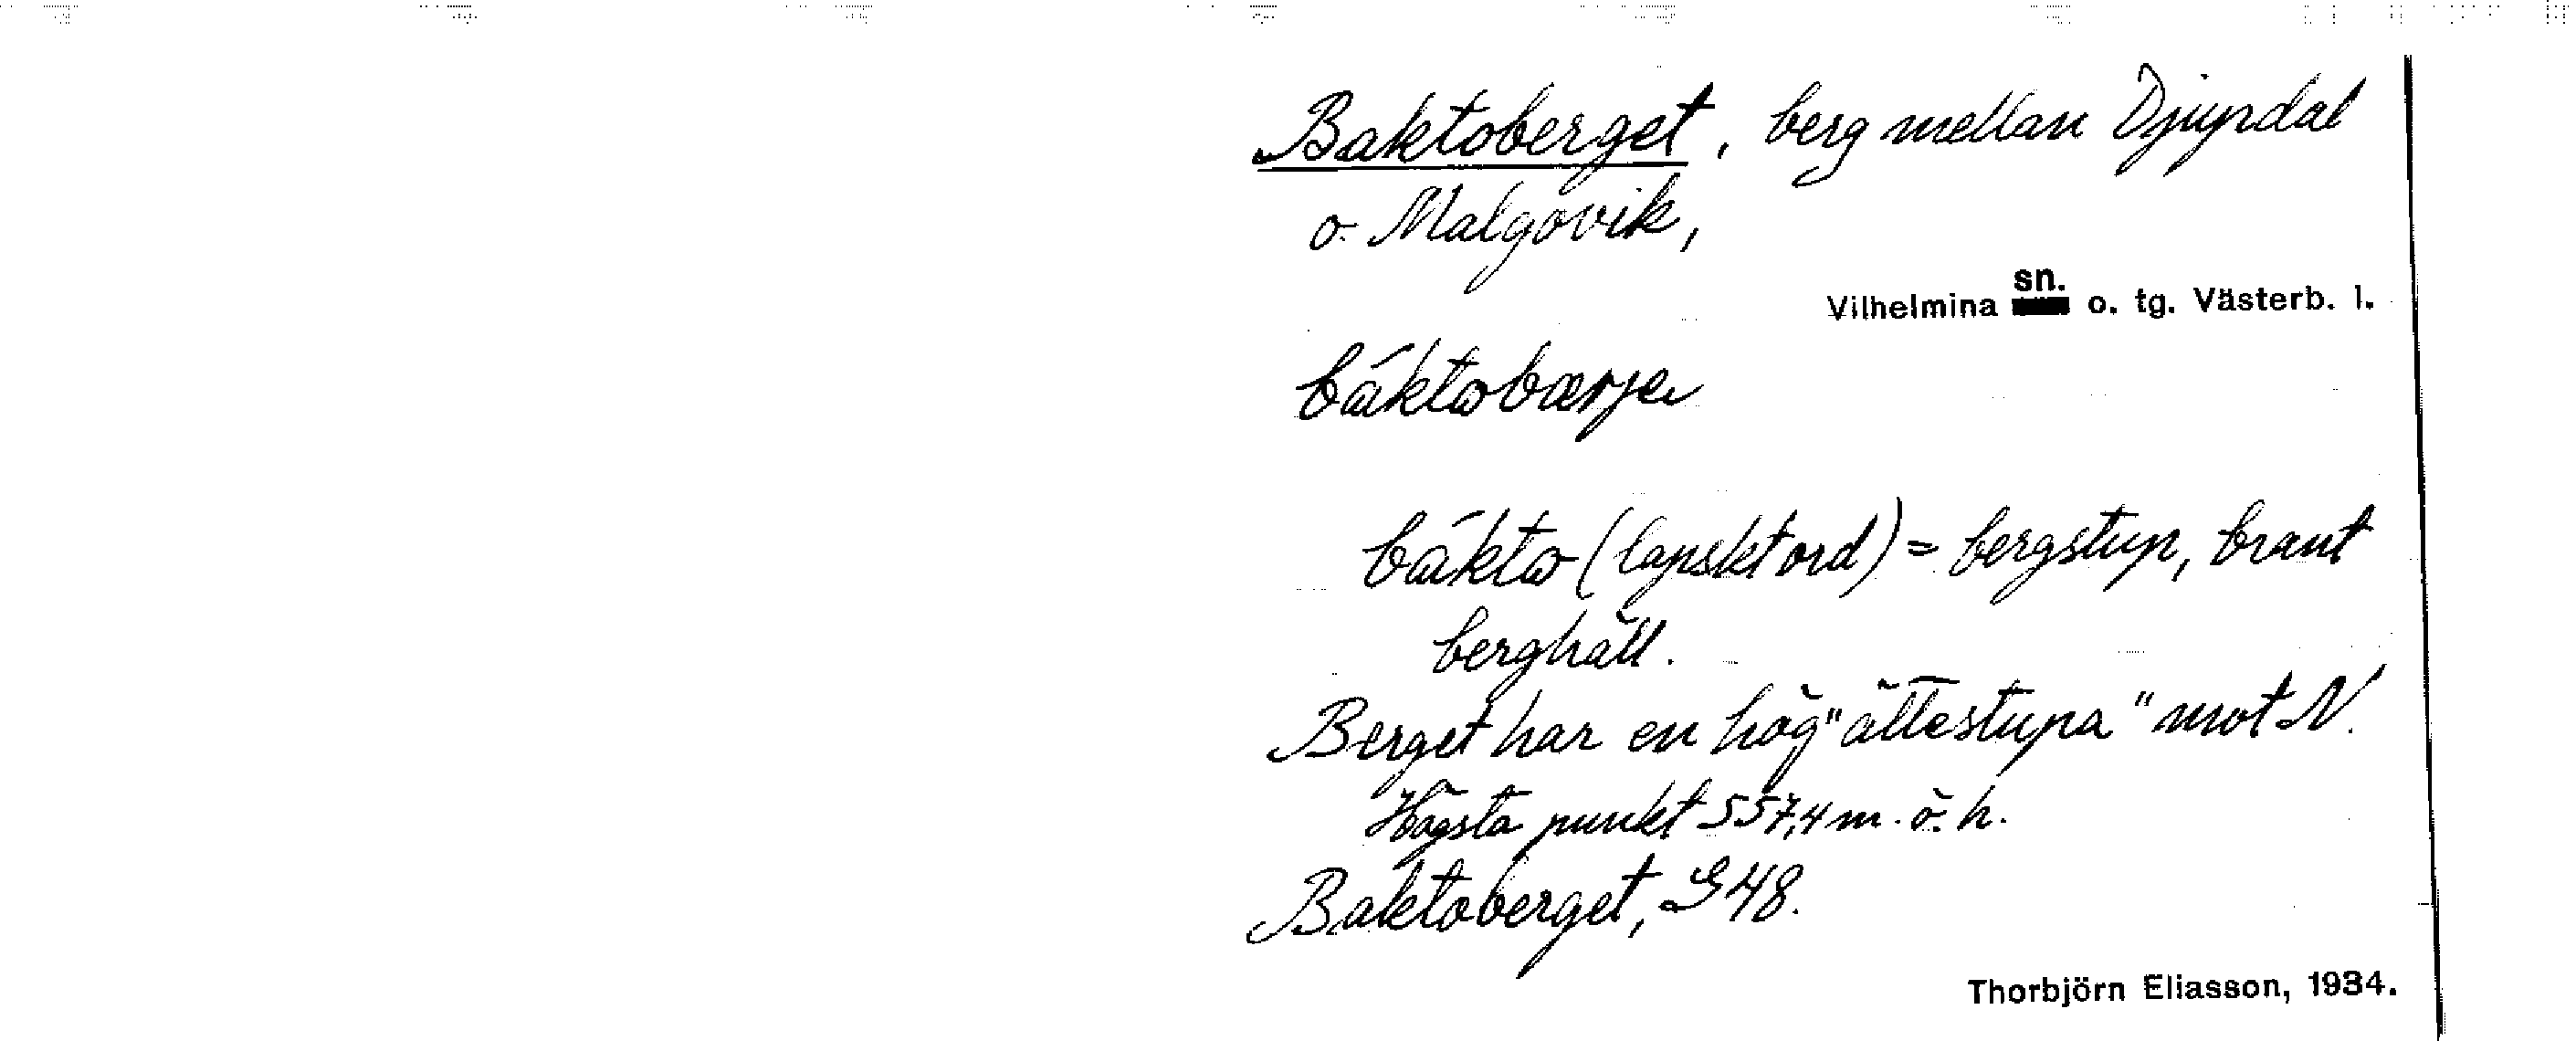 Baktoberget, berg mellan Djupdal
o. Malgovik,
Vilhelmina sn. o. tg. Västerb. l.
báktobærje
bákto (lapskt ord) = bergstup, brant
berghäll.
Berget har en hög "ättestupa" mot N.
Högsta punkt 557,4 m. ö. h.
Baktoberget, G 48.
Thorbjörn Eliasson, 1934.